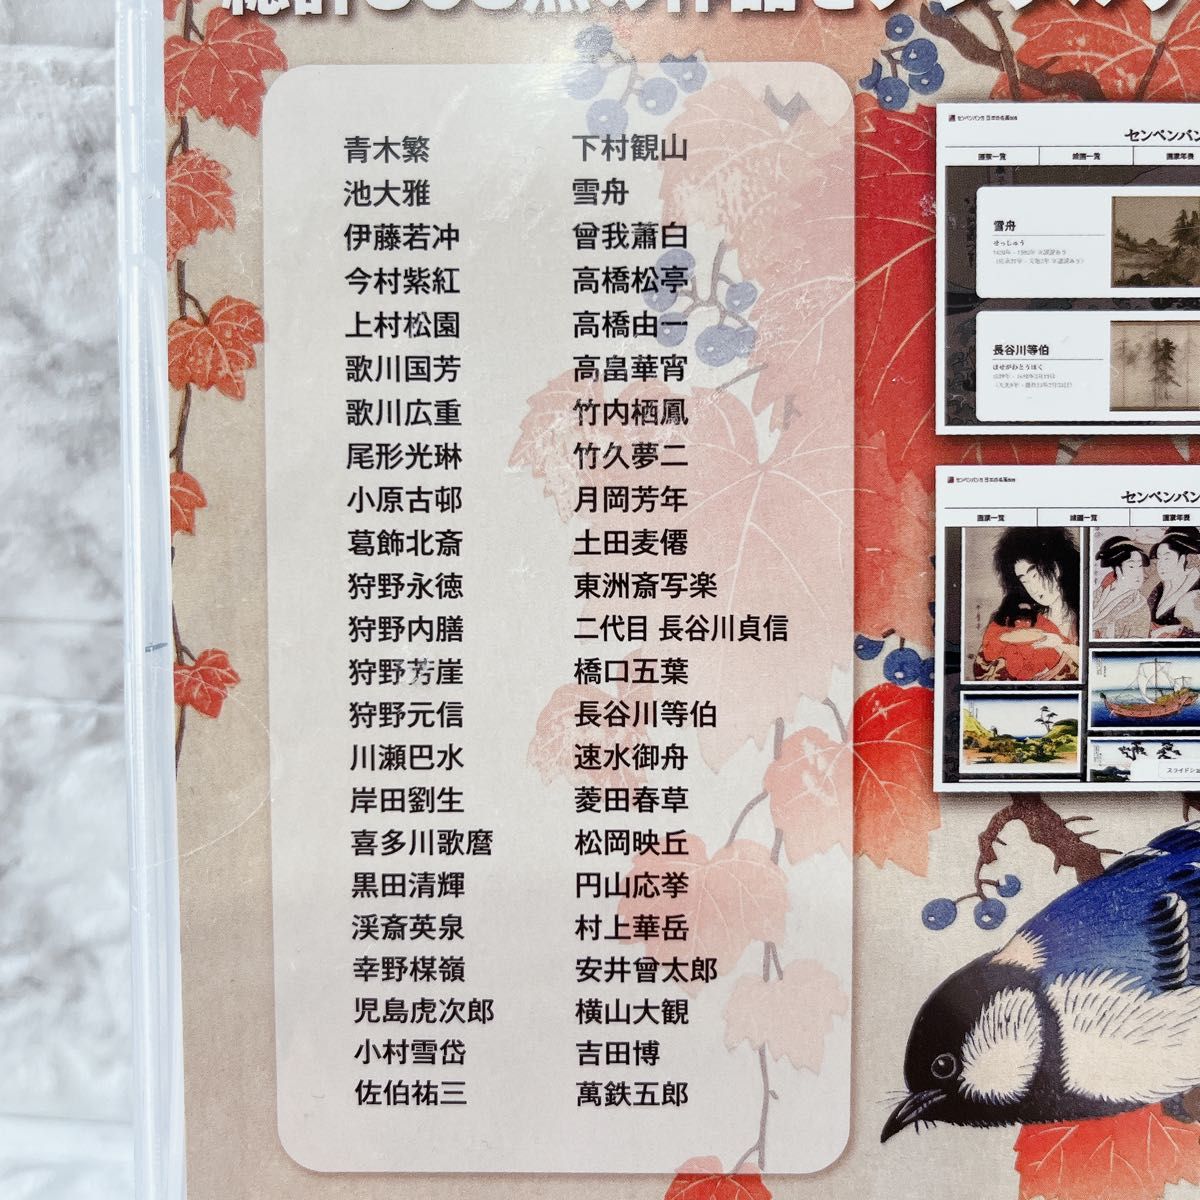 青木繁
池大雅
伊藤若冲
今村紫紅
上村松園
歌川国芳
歌川広重
尾形光琳
小原古邨
葛飾北斎
狩野永徳
狩野内膳
狩野芳崖
狩野元信
川瀬巴水
岸田劉生
喜多川歌麿
黒田清輝
渓斎英泉
幸野楳嶺
児島虎次郎
小村雪岱
佐伯祐三
下村観山
雪舟
曾我蕭白
高橋松亭
高橋由一
高畠華宵
竹内栖鳳
竹久夢二
月岡芳年
土田麦僊
東洲斎写楽
二代目 長谷川貞信
橋口五葉
長谷川等伯
速水御舟
菱田春草
松岡映丘
円山応挙
村上華岳
安井曾太郎
横山大観
吉田博
萬鉄五郎
センペンバン
画家一覧
絵画一覧
画家年表
雪舟
せっしゅう
長谷川等伯
はせがわとうはく
センペンバン
画家一覧
絵画一覧
画家年表
スライドショ